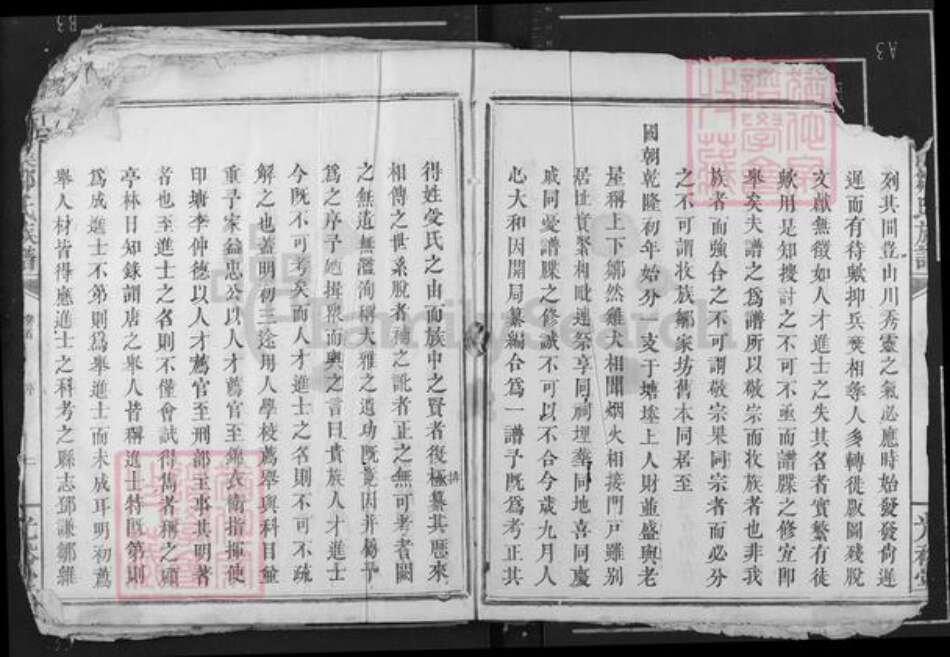 列其間登山川秀靈之氣必應時始發發尙遲
遲而有待歟抑兵燹相尋人多轉徙版圖殘脫
文獻無徵如人才進士之失其名者實繁有徒
歟用是知搜討之不可不亟而譜牒之修宜卽
舉矣夫譜之爲譜所以敬宗而收族者也非我
族者而強合之不可謂敬宗果同宗者而必分
之不可謂收族鄒家坊舊本同居至
國朝乾隆初年始分 支于塘塝上人財並盛與老
屋稱上下鄒然雞犬相聞烟火相接門戶雖别
居址實緊相毗連祭享同祠埋塟同地喜同慶
戚同憂譜牒之修誠不可以不合今歲九月人
心大和因開局纂編合爲一譜予旣爲考正其
得姓受氏之由而族中之賢者復極纂其歷來
相傳之世系脫者補之訛者正之無可考者闕
之無遺無濫洵稱大雅之遺功旣竟因并屬予
爲之序予廼揖眾而與之言曰貴族人才進士
今旣不可考矣而人才進士之名則不可不疏
解之也蓋明初三途用人學校薦舉與科目並
重予家益忠公以人才薦官至錦衣衛指揮使
印塘李仲德以人才薦官至刑部主事其明著
者也至進士之名則不僅會試得雋者稱之顧
亭林日知錄謂唐之舉人皆稱進士特旣第則
爲成進士不第則爲舉進士而未成耳明初薦
舉人材皆得應進士之科考之縣志鄧謙鄒雝
鄒氏族譜
光裕堂